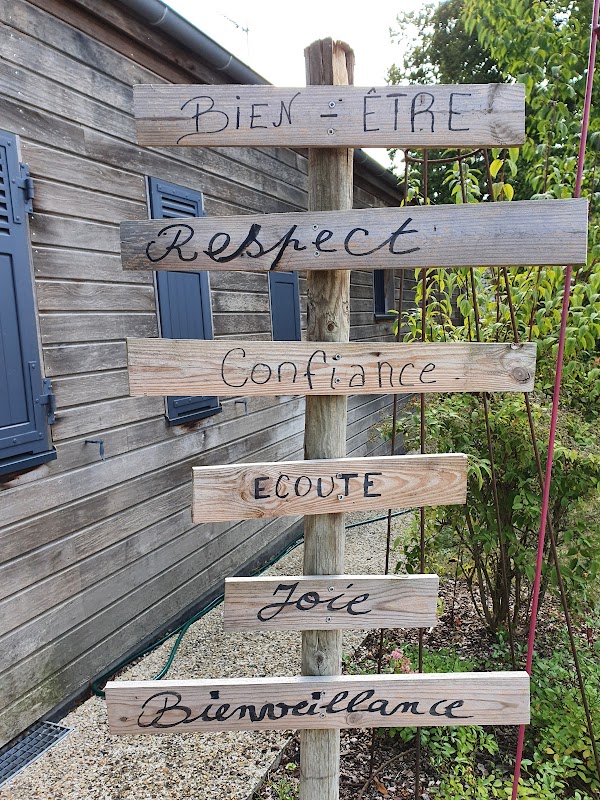 BIEN - ÊTRE
Respect
Confiance
ECOUTE
Joie
Bienveillance